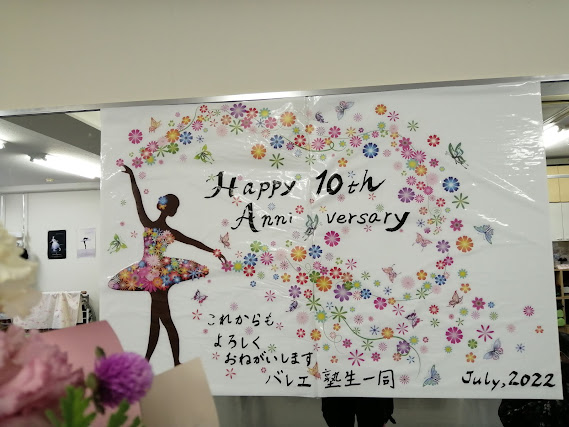 Happy 10th
Anniversary
これからも
よろしく
おねがいします
バレエ 塾生一同
July, 2022